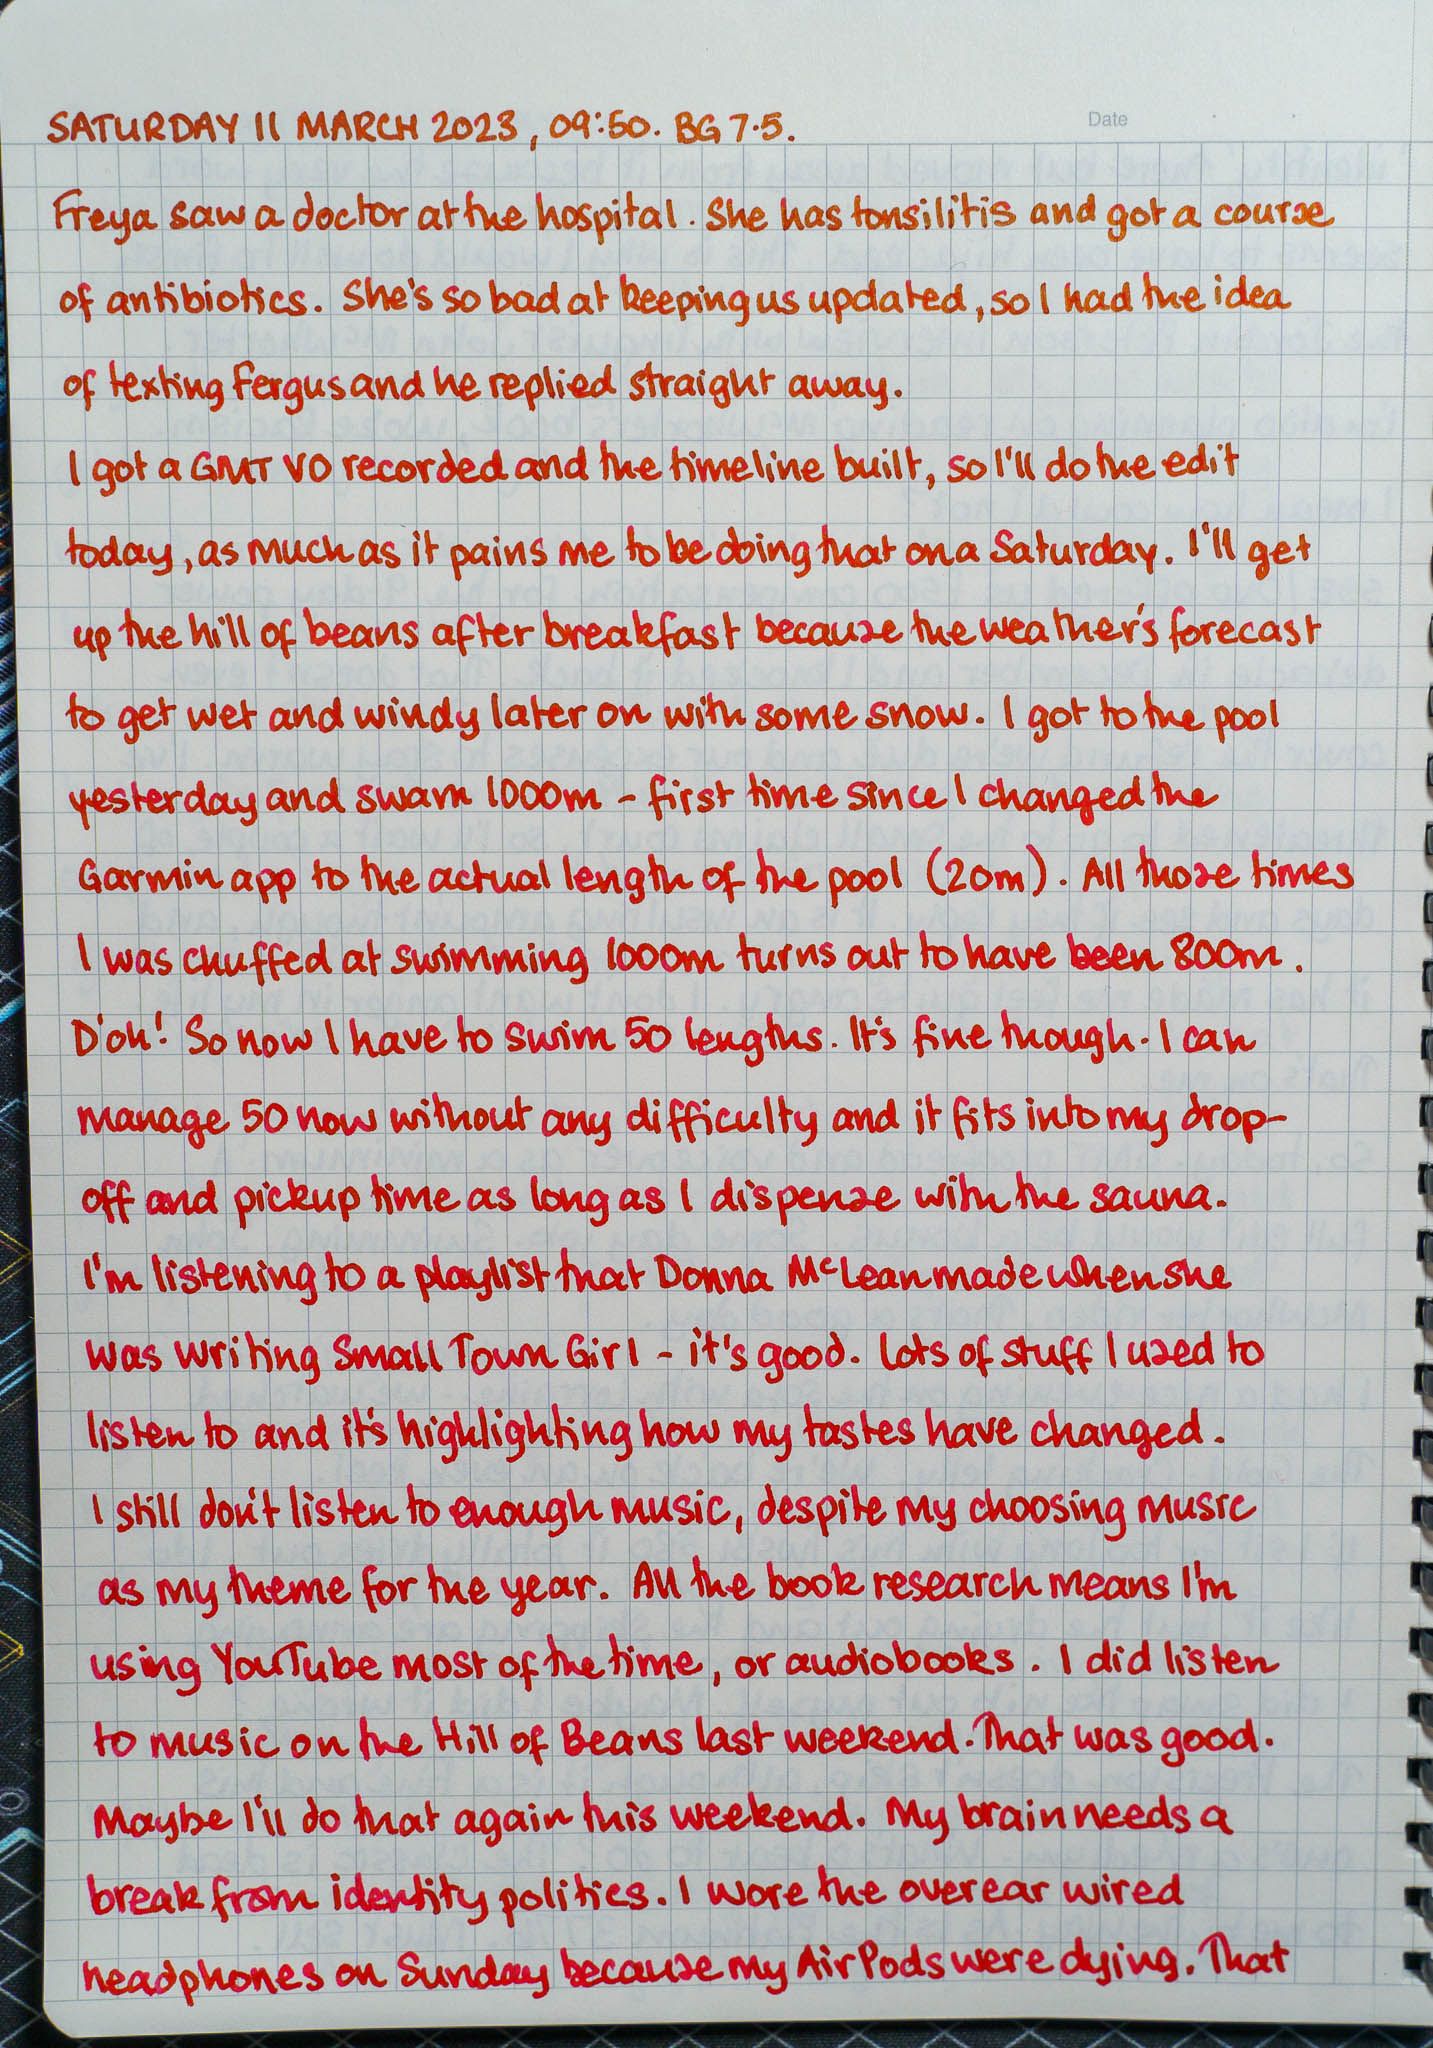 SATURDAY 11 MARCH 2023, 09:50. BG 7.5.
Date
Freya saw a doctor at the hospital. She has tonsilitis and got a course
of antibiotics. She's so bad at keeping us updated, so I had the idea
of texting Fergus and he replied straight away.
I got a GMT VO recorded and the timeline built, so I'll do the edit
today, as much as it pains me to be doing that on a Saturday. I'll get
up the hill of beans after breakfast because the weather's forecast
to get wet and windy later on with some snow. I got to the pool
yesterday and swam 1000m - first time since I changed the
Garmin app to the actual length of the pool (20m). All those times
I was chuffed at swimming 1000m turns out to have been 800m.
D'oh! So now I have to swim 50 lengths. It's fine though. I can
manage 50 now without any difficulty and it fits into my drop-
off and pickup time as long as I dispense with the sauna.
I'm listening to a playlist that Donna McLean made when she
was writing Small Town Girl - it's good. Lots of stuff I used to
listen to and it's highlighting how my tastes have changed.
I still don't listen to enough music, despite my choosing music
as my theme for the year. All the book research means I'm
using YouTube most of the time, or audiobooks. I did listen
to music on the Hill of Beans last weekend. That was good.
Maybe I'll do that again this weekend. My brain needs a
break from identity politics. I wore the overear wired
headphones on Sunday because my AirPods were dying. That